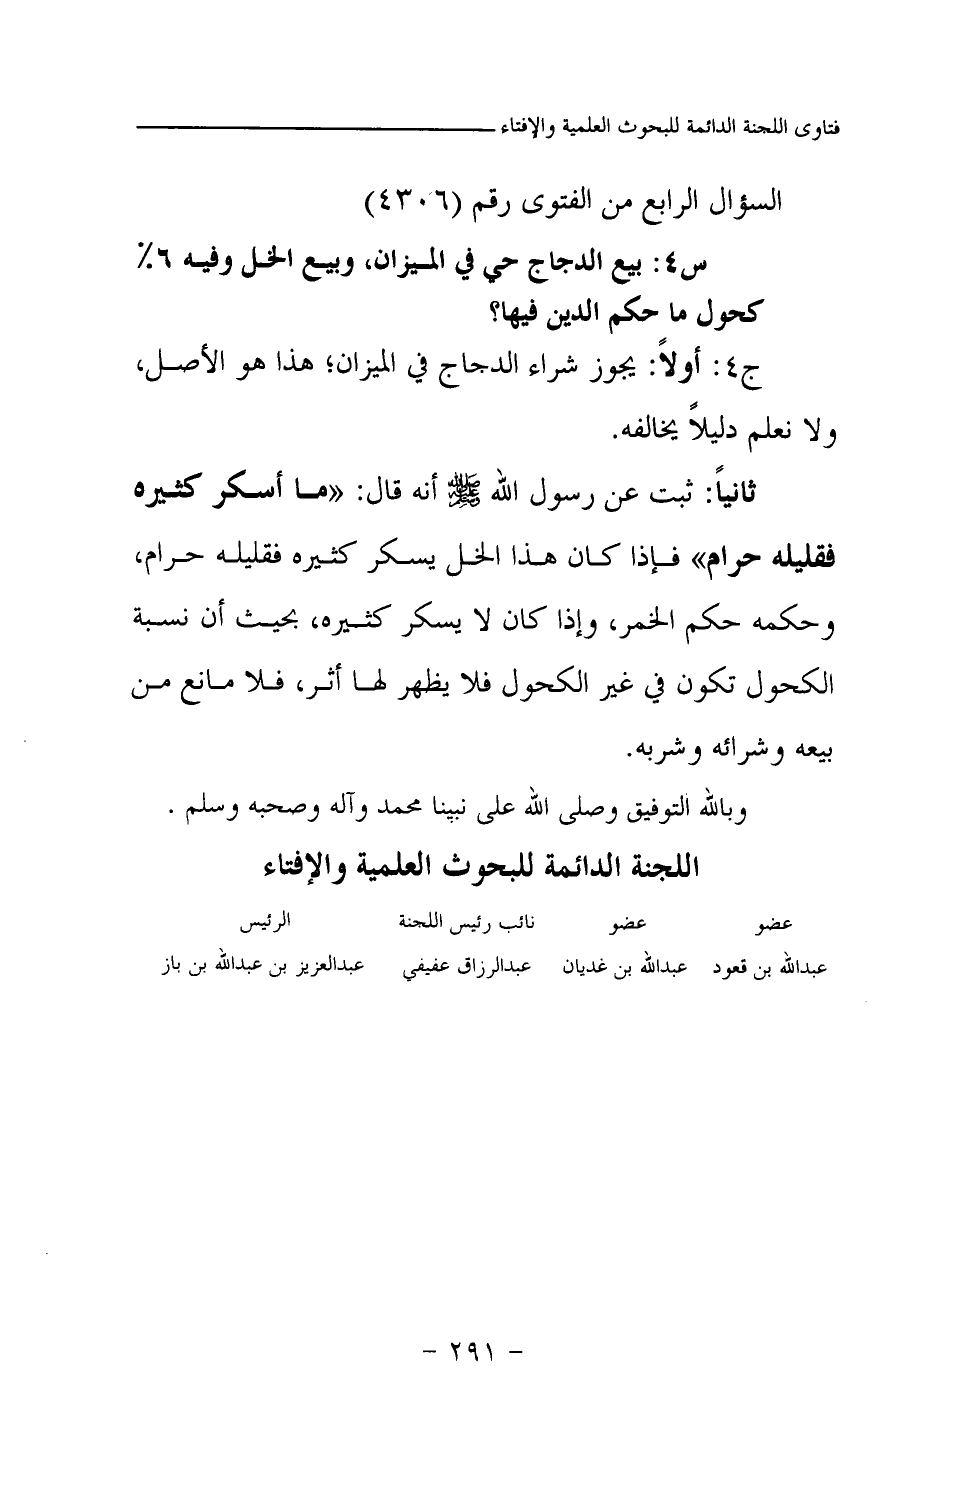 فتاوى اللجنة الدائمة للبحوث العلمية والإفتاء
السؤال الرابع من الفتوى رقم (٤٣٠٦)
س٤: بيع الدجاج حي في الميزان، وبيع الخل وفيه ٦٪
كحول ما حكم الدين فيها؟
ج٤: أولاً: يجوز شراء الدجاج في الميزان؛ هذا هو الأصل،
ولا نعلم دليلاً يخالفه.
ثانياً: ثبت عن رسول الله ﷺ أنه قال: «ما أسكر كثيره
فقليله حرام» فإذا كان هذا الخل يسكر كثيره فقليله حرام،
وحكمه حكم الخمر، وإذا كان لا يسكر كثيره، بحيث أن نسبة
الكحول تكون في غير الكحول فلا يظهر لها أثر، فلا مانع من
بيعه وشرائه وشربه.
وبالله التوفيق وصلى الله على نبينا محمد وآله وصحبه وسلم .
اللجنة الدائمة للبحوث العلمية والإفتاء
عضو عضو نائب رئيس اللجنة الرئيس
عبدالله بن قعود عبدالله بن غديان عبدالرزاق عفيفي عبدالعزيز بن عبدالله بن باز
- ٢٩١ -